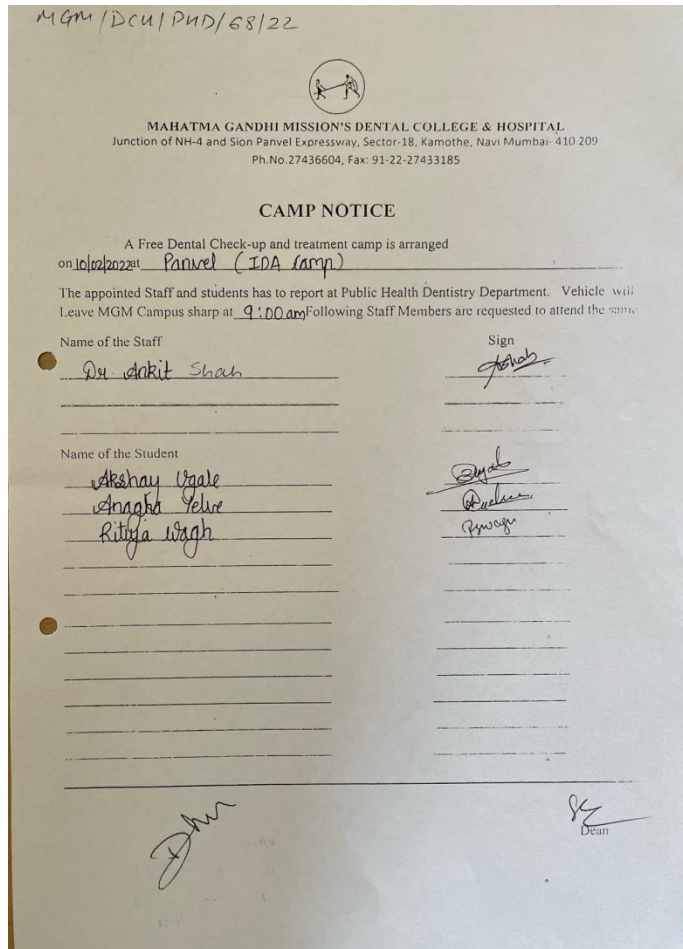 MGM/DCH/PHD/68/22
MAHATMA GANDHI MISSION'S DENTAL COLLEGE & HOSPITAL
Junction of NH-4 and Sion Panvel Expressway, Sector-18, Kamothe, Navi Mumbai- 410 209
Ph.No.27436604, Fax: 91-22-27433185
CAMP NOTICE
A Free Dental Check-up and treatment camp is arranged
on 10/02/2022 at Panvel (IDA Camp)
The appointed Staff and students has to report at Public Health Dentistry Department. Vehicle will
Leave MGM Campus sharp at 9:00 am Following Staff Members are requested to attend the same
Name of the Staff Sign
Dr. Ankit Shah
Name of the Student
Akshay Ugale
Anagha Yelve
Rituja Wagh
Dean